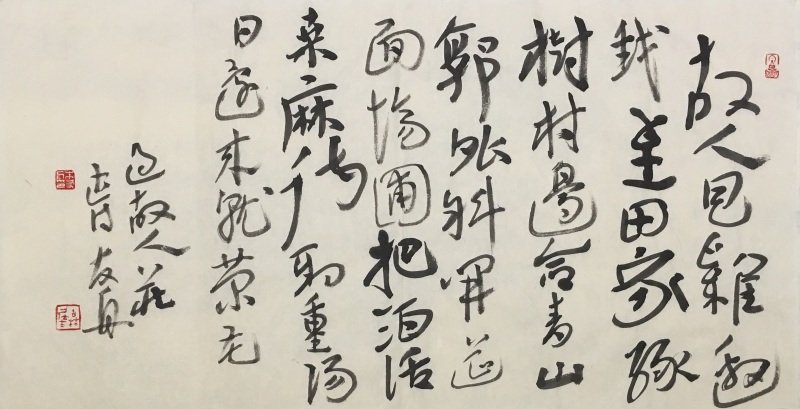 故人具雞邀
我至田家綠
樹村邊合青山
郭外斜開筵
面場圃把酒話
桑麻待到重陽
日還來就菊花
過故人莊